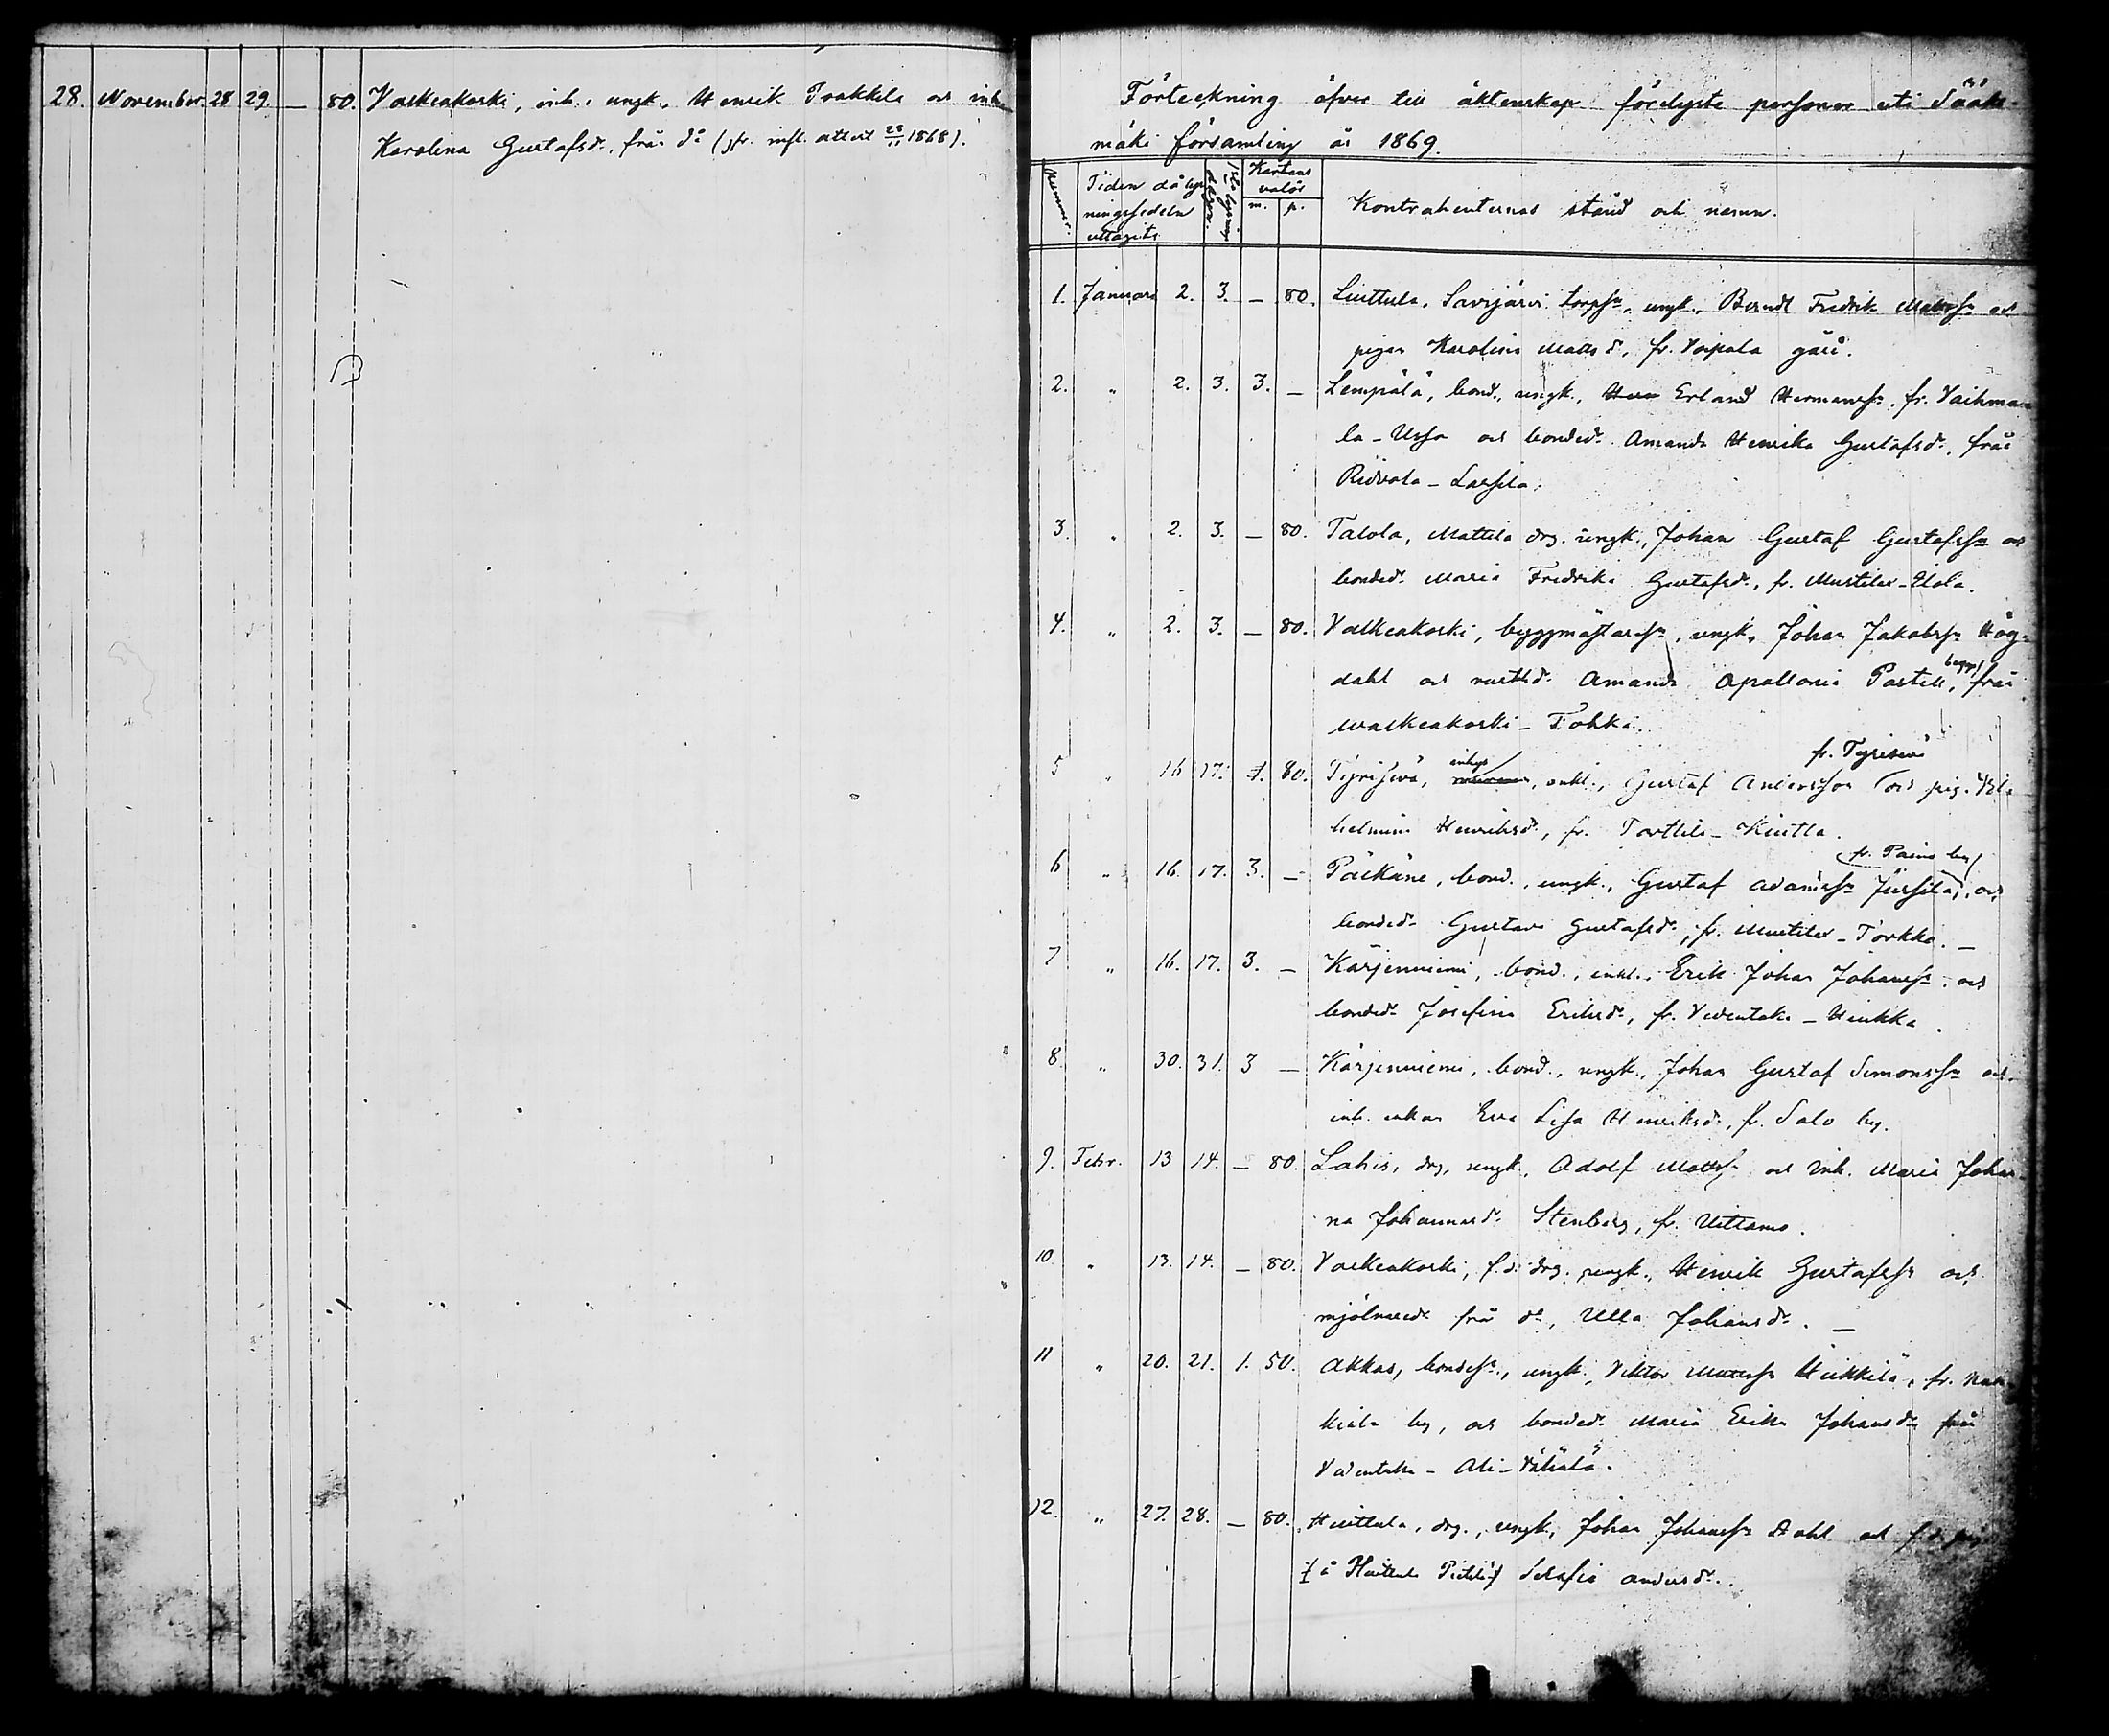 28. November. 28 29. — 80. Valkeakoski, inh., ungk., Henrik Taakkila och inh.
Karolina Gustafsd., från do (jfr. infl. attest 28/11 1868).
Förteckning öfver till äktenskap förelyste personer uti Sääks-
mäki församling år 1869.
Nummer. Tiden då lys- ningssedeln uttagits. 1sta lysnings dagen. Kartans valör m. p. Kontrahenternas stånd och namn.
1. Januari 2. 3. — 80. Liuttula, Savijärvi torpsn, ungk., Berndt Fredrik Mattssn och
pigan Karolina Mattsd., fr. Voipala gård.
2. " 2. 3. 3. — Lempälä, bond., ungk., Erland Hermanssn, fr. Vaihma-
la-Ussa och bonded. Amanda Henrika Gustafsd., från
Ridvala-Larsila.
3. " 2. 3. — 80. Talola, Mattila drg. ungk., Johan Gustaf Gustafssn och
bonded. Maria Fredrika Gustafsd., fr. Mustila-Uola.
4. " 2. 3. — 80. Valkeakoski, byggmästaresn, ungk., Johan Jakobssn Hög-
dahl och rusthd. Amanda Apollonia Pastell, från
Walkeakoski-Tohka.
fr. Tyrisevä
5 " 16 17. 1. 80. Tyrisevä, inhys, enkl., Gustaf Andersson och pig. Vil-
helmina Henriksd., fr. Tarttila-Kiutta.
fr. Paino by
6 " 16. 17. 3. — Pälkäne, bond., ungk., Gustaf Adamssn Jussila, och
bonded. Gustava Gustafsd., fr. Mustila-Torkko. —
7 " 16. 17. 3. — Kärjenniemi, bond., enkl., Erik Johan Johanssn och
bonded. Josefina Eriksd., fr. Vedentaka-Heikka.
8. " 30. 31. 3 — Kärjenniemi, bond., ungk., Johan Gustaf Simonssn och
inh. enkan Eva Lisa Henriksd., fr. Salo by.
9. Febr. 13 14. — 80. Lahis, drg, ungk., Adolf Mattssn och inh. Maria Johan-
na Johannesd. Stenberg, fr. Uittamo.
10 " 13. 14. — 80. Valkeakoski, f.d. drg. ungk., Henrik Gustafssn och
mjölnared. från do, Ulla Johansd. —
11 " 20. 21. 1. 50. Akkas, bondesn., ungk., Viktor Mattssn Heikkilä, fr.
by, och bonded. Maria Erika Johansd. från
Vedentaka-Ali-Vähälä.
12. " 27. 28. — 80. Huittula, drg., ungk., Johan Johanssn Dahl och f.d. pig.
i Huittula Serafia Andersd.